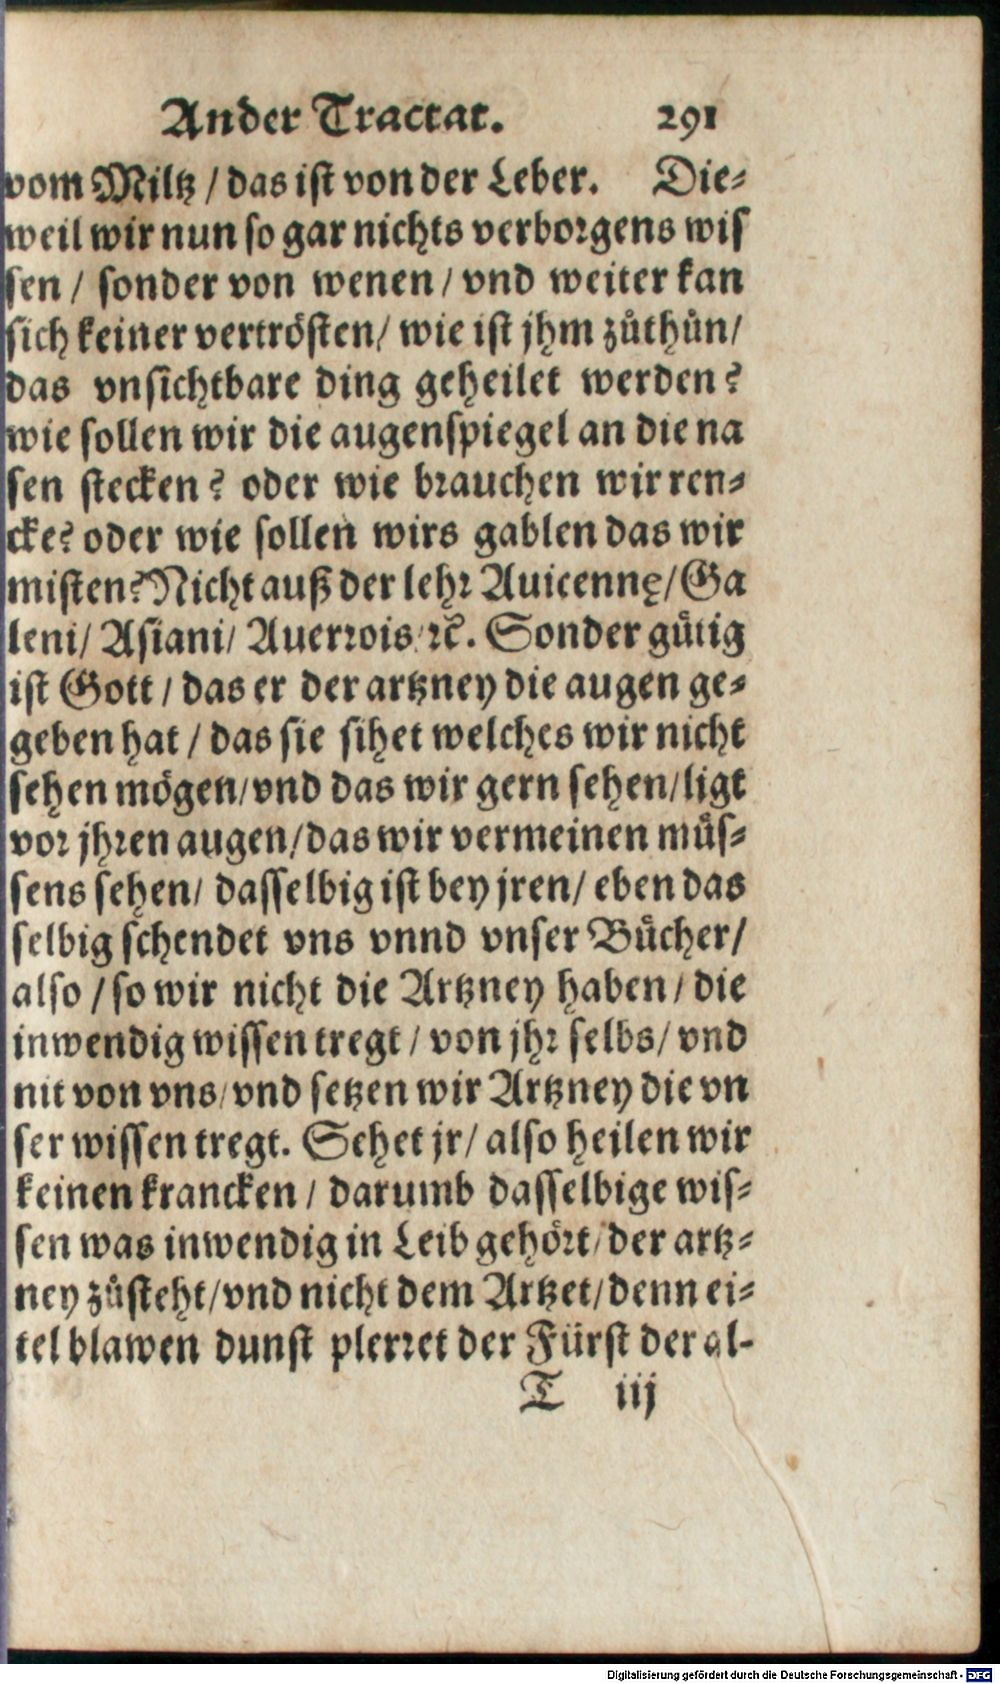 Ander Tractat. 291
vom Miltz / das ist von der Leber. Die⸗
weil wir nun so gar nichts verborgens wis
sen / sonder von wenen / vnd weiter kan
sich keiner vertrösten / wie ist jhm zůthůn /
das vnsichtbare ding geheilet werden?
wie sollen wir die augenspiegel an die na
sen stecken? oder wie brauchen wir ren⸗
cke? oder wie sollen wirs gablen das wir
misten? Nicht auß der lehr Auicennę / Ga
leni / Asiani / Auerrois / ꝛc̃. Sonder gütig
ist Gott / das er der artzney die augen ge⸗
geben hat / das sie sihet welches wir nicht
sehen mögen / vnd das wir gern sehen / ligt
vor jhren augen / das wir vermeinen müs⸗
sens sehen / dasselbig ist bey jren / eben das
selbig schendet vns vnnd vnser Bücher /
also / so wir nicht die Artzney haben / die
inwendig wissen tregt / von jhr selbs / vnd
nit von vns / vnd setzen wir Artzney die vn
ser wissen tregt. Sehet jr / also heilen wir
keinen krancken / darumb dasselbige wis⸗
sen was inwendig in Leib gehört / der artz⸗
ney zůsteht / vnd nicht dem Artzet / denn ei⸗
tel blawen dunst plerret der Fürst der al-
T iij
Digitalisierung gefördert durch die Deutsche Forschungsgemeinschaft - DFG